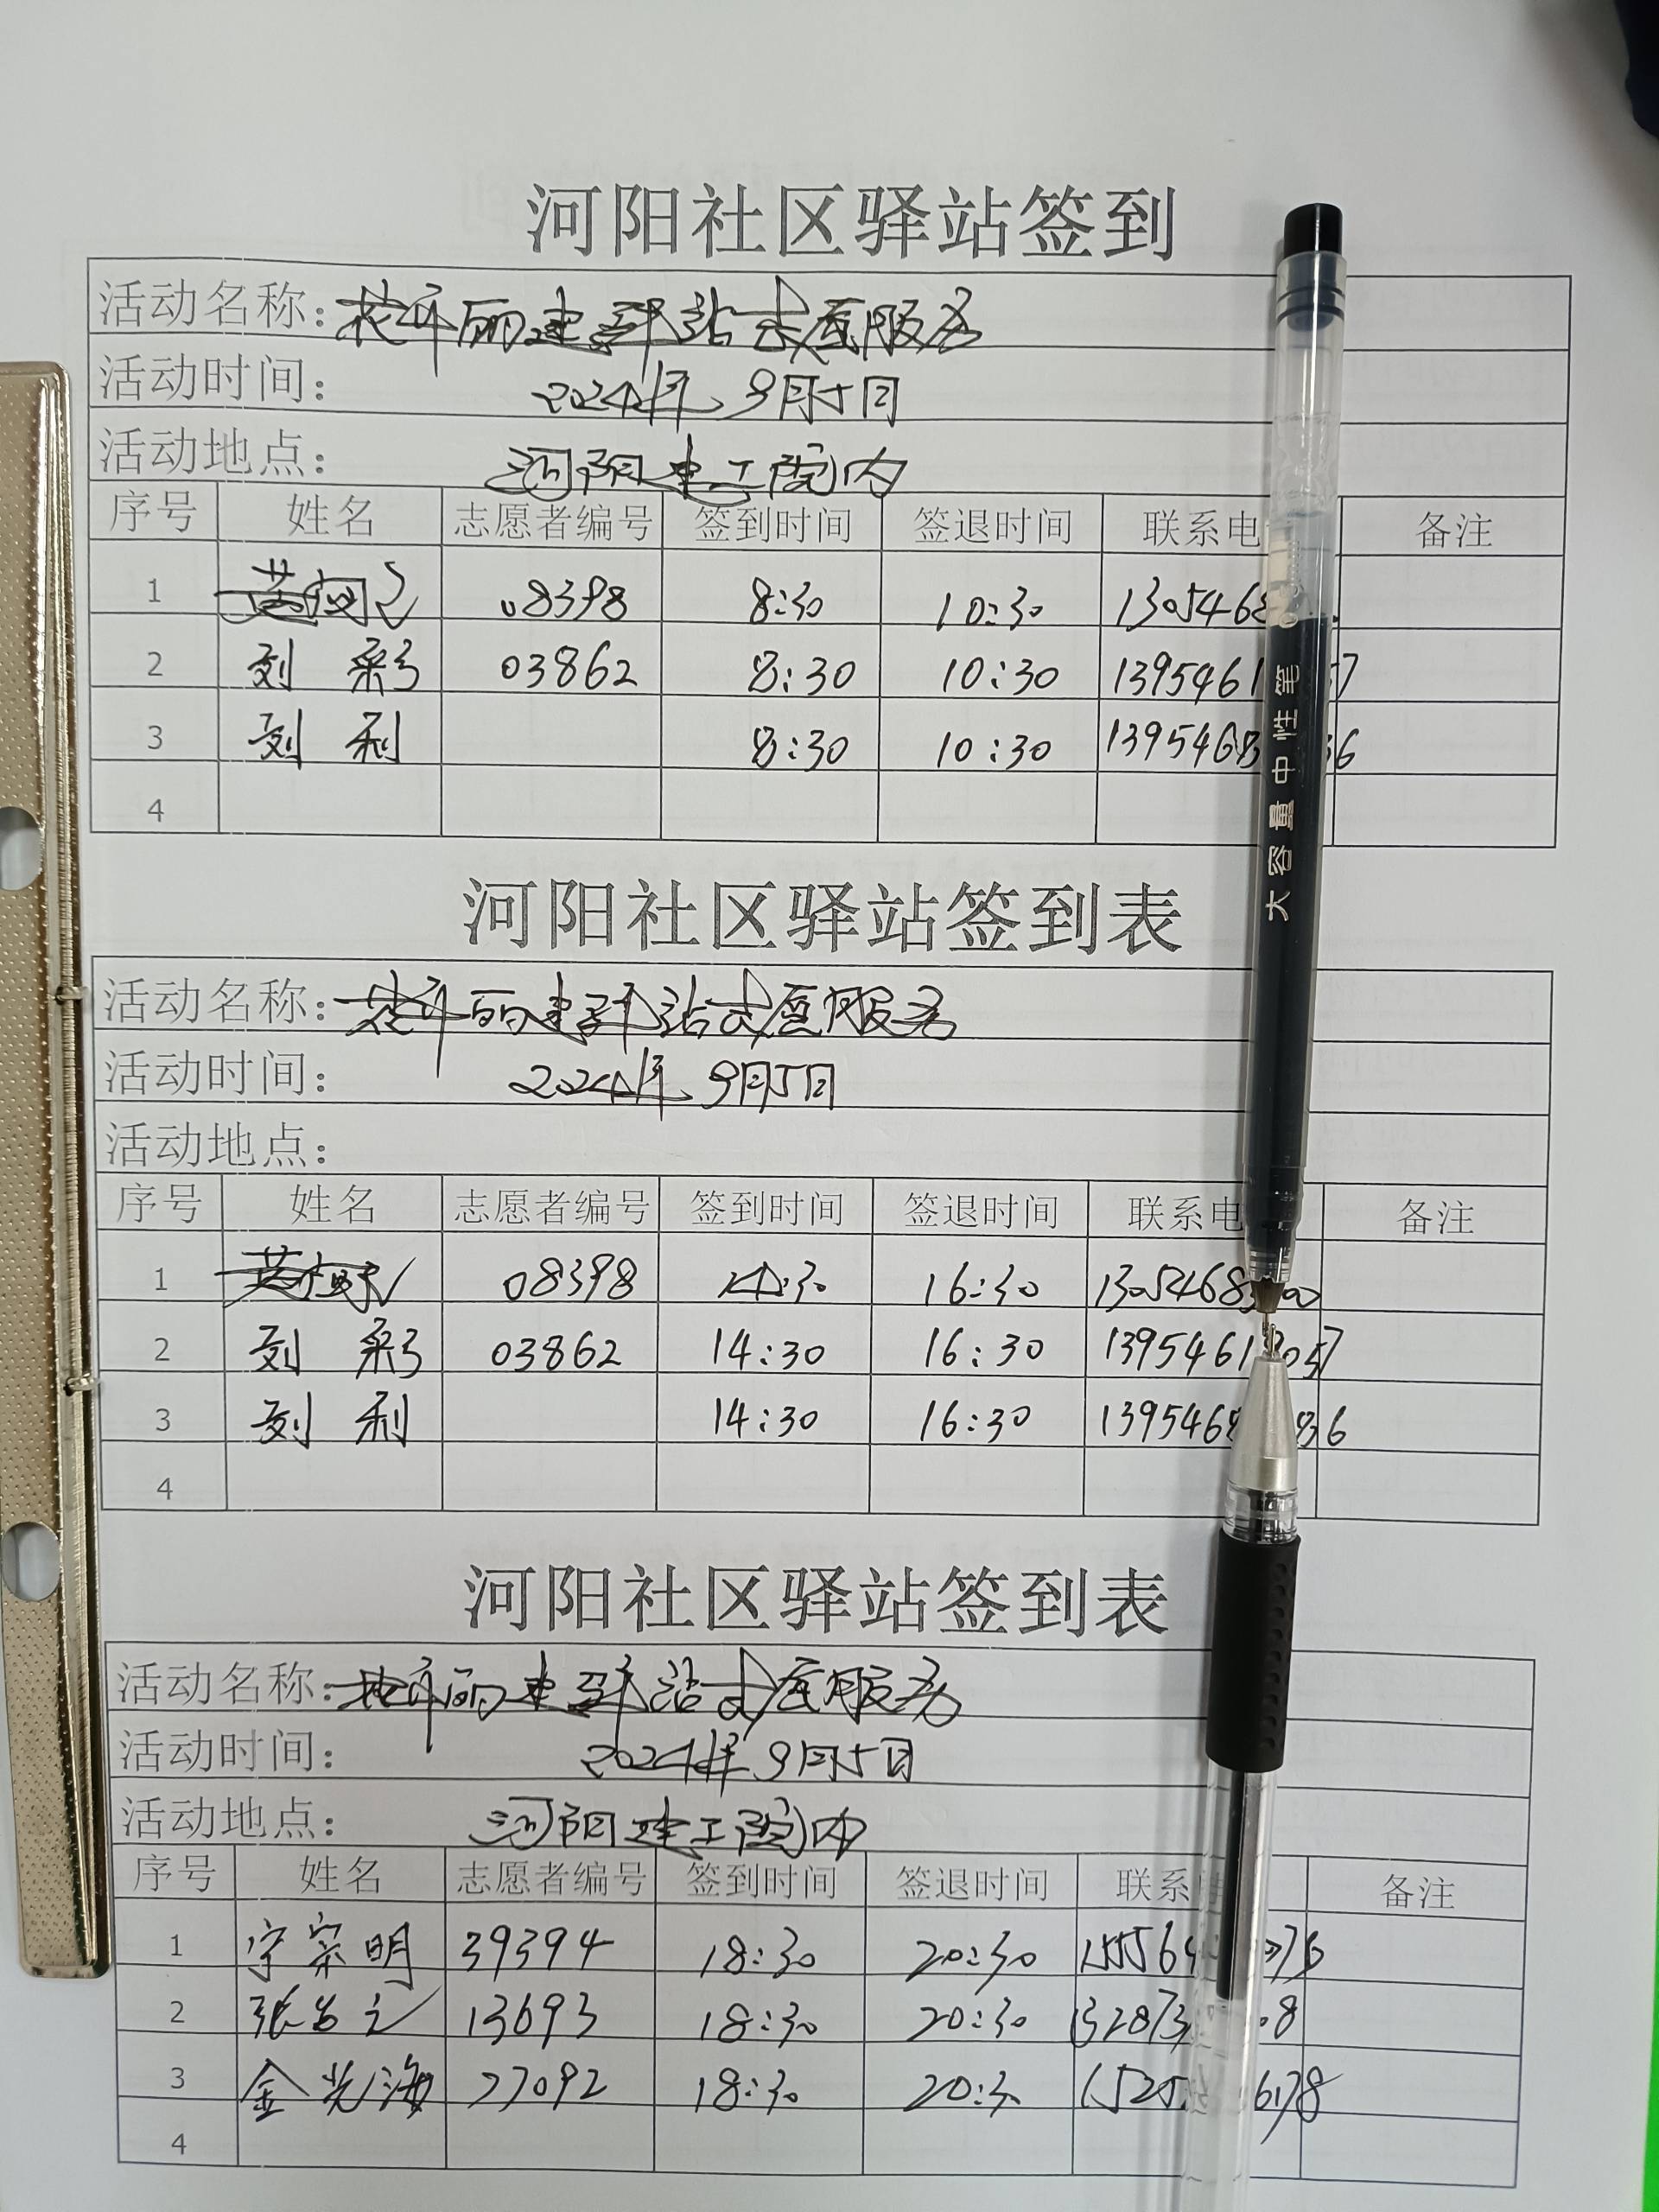 河阳社区驿站签到
活动名称: 建驿站志愿服务
活动时间: 2024年9月5日
活动地点: 河阳建工院内
序号 姓名 志愿者编号 签到时间 签退时间 联系电 备注
1 08398 8:30 10:30 1305468
2 刘彩 03862 8:30 10:30 1395461 57
3 刘利 8:30 10:30 1395468 36
4
河阳社区驿站签到表
活动名称: 建驿站志愿服务
活动时间: 2024年9月5日
活动地点:
序号 姓名 志愿者编号 签到时间 签退时间 联系电 备注
1 08398 14:30 16:30 1305468 00
2 刘彩 03862 14:30 16:30 1395461 057
3 刘利 14:30 16:30 139546 836
4
河阳社区驿站签到表
活动名称: 建驿站志愿服务
活动时间: 2024年9月5日
活动地点: 河阳建工院内
序号 姓名 志愿者编号 签到时间 签退时间 联系 备注
1 宗明 39394 18:30 20:30 15556 76
2 张 13693 18:30 20:30 132873 8
3 金光海 27092 18:30 20:30 1525 6178
4
大容量中性笔